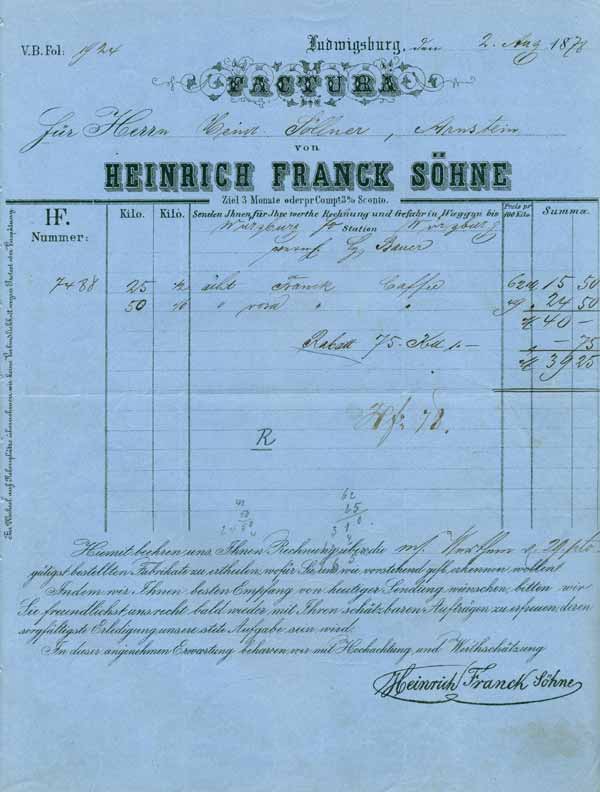 V.B. Fol: 924
Ludwigsburg, den 2. Aug 1878
FACTURA
Für Herrn Söllner, Arnstein
von
HEINRICH FRANCK SÖHNE
Ziel 3 Monate oder pr Compt 3% Sconto.
HF. Nummer: Kilo. Kilo. Senden Ihnen für Ihre werthe Rechnung und Gefahr in Waggon bis Preis pr 100 Kilo. Summa.
Würzburg Station Würzburg
Bauer
7488 25 ächt Franck Caffee 62 15 50
50 " " " 49 24 50
40 —
Rabatt 75 — 75
39 25
R
49
50
62
25
Hiemit beehren uns, Ihnen Rechnung über die 29. pto.
gütigst bestellten Fabrikate zu ertheilen, wofür Sie uns wie vorstehend gefl. erkennen wollen.
Indem wir Ihnen besten Empfang von heutiger Sendung wünschen, bitten wir
Sie freundlichst, uns recht bald wieder mit Ihren schätzbaren Aufträgen zu erfreuen, deren
sorgfältigste Erledigung unsere stete Aufgabe sein wird.
In dieser angenehmen Erwartung beharren wir mit Hochachtung und Werthschätzung
Heinrich Franck Söhne